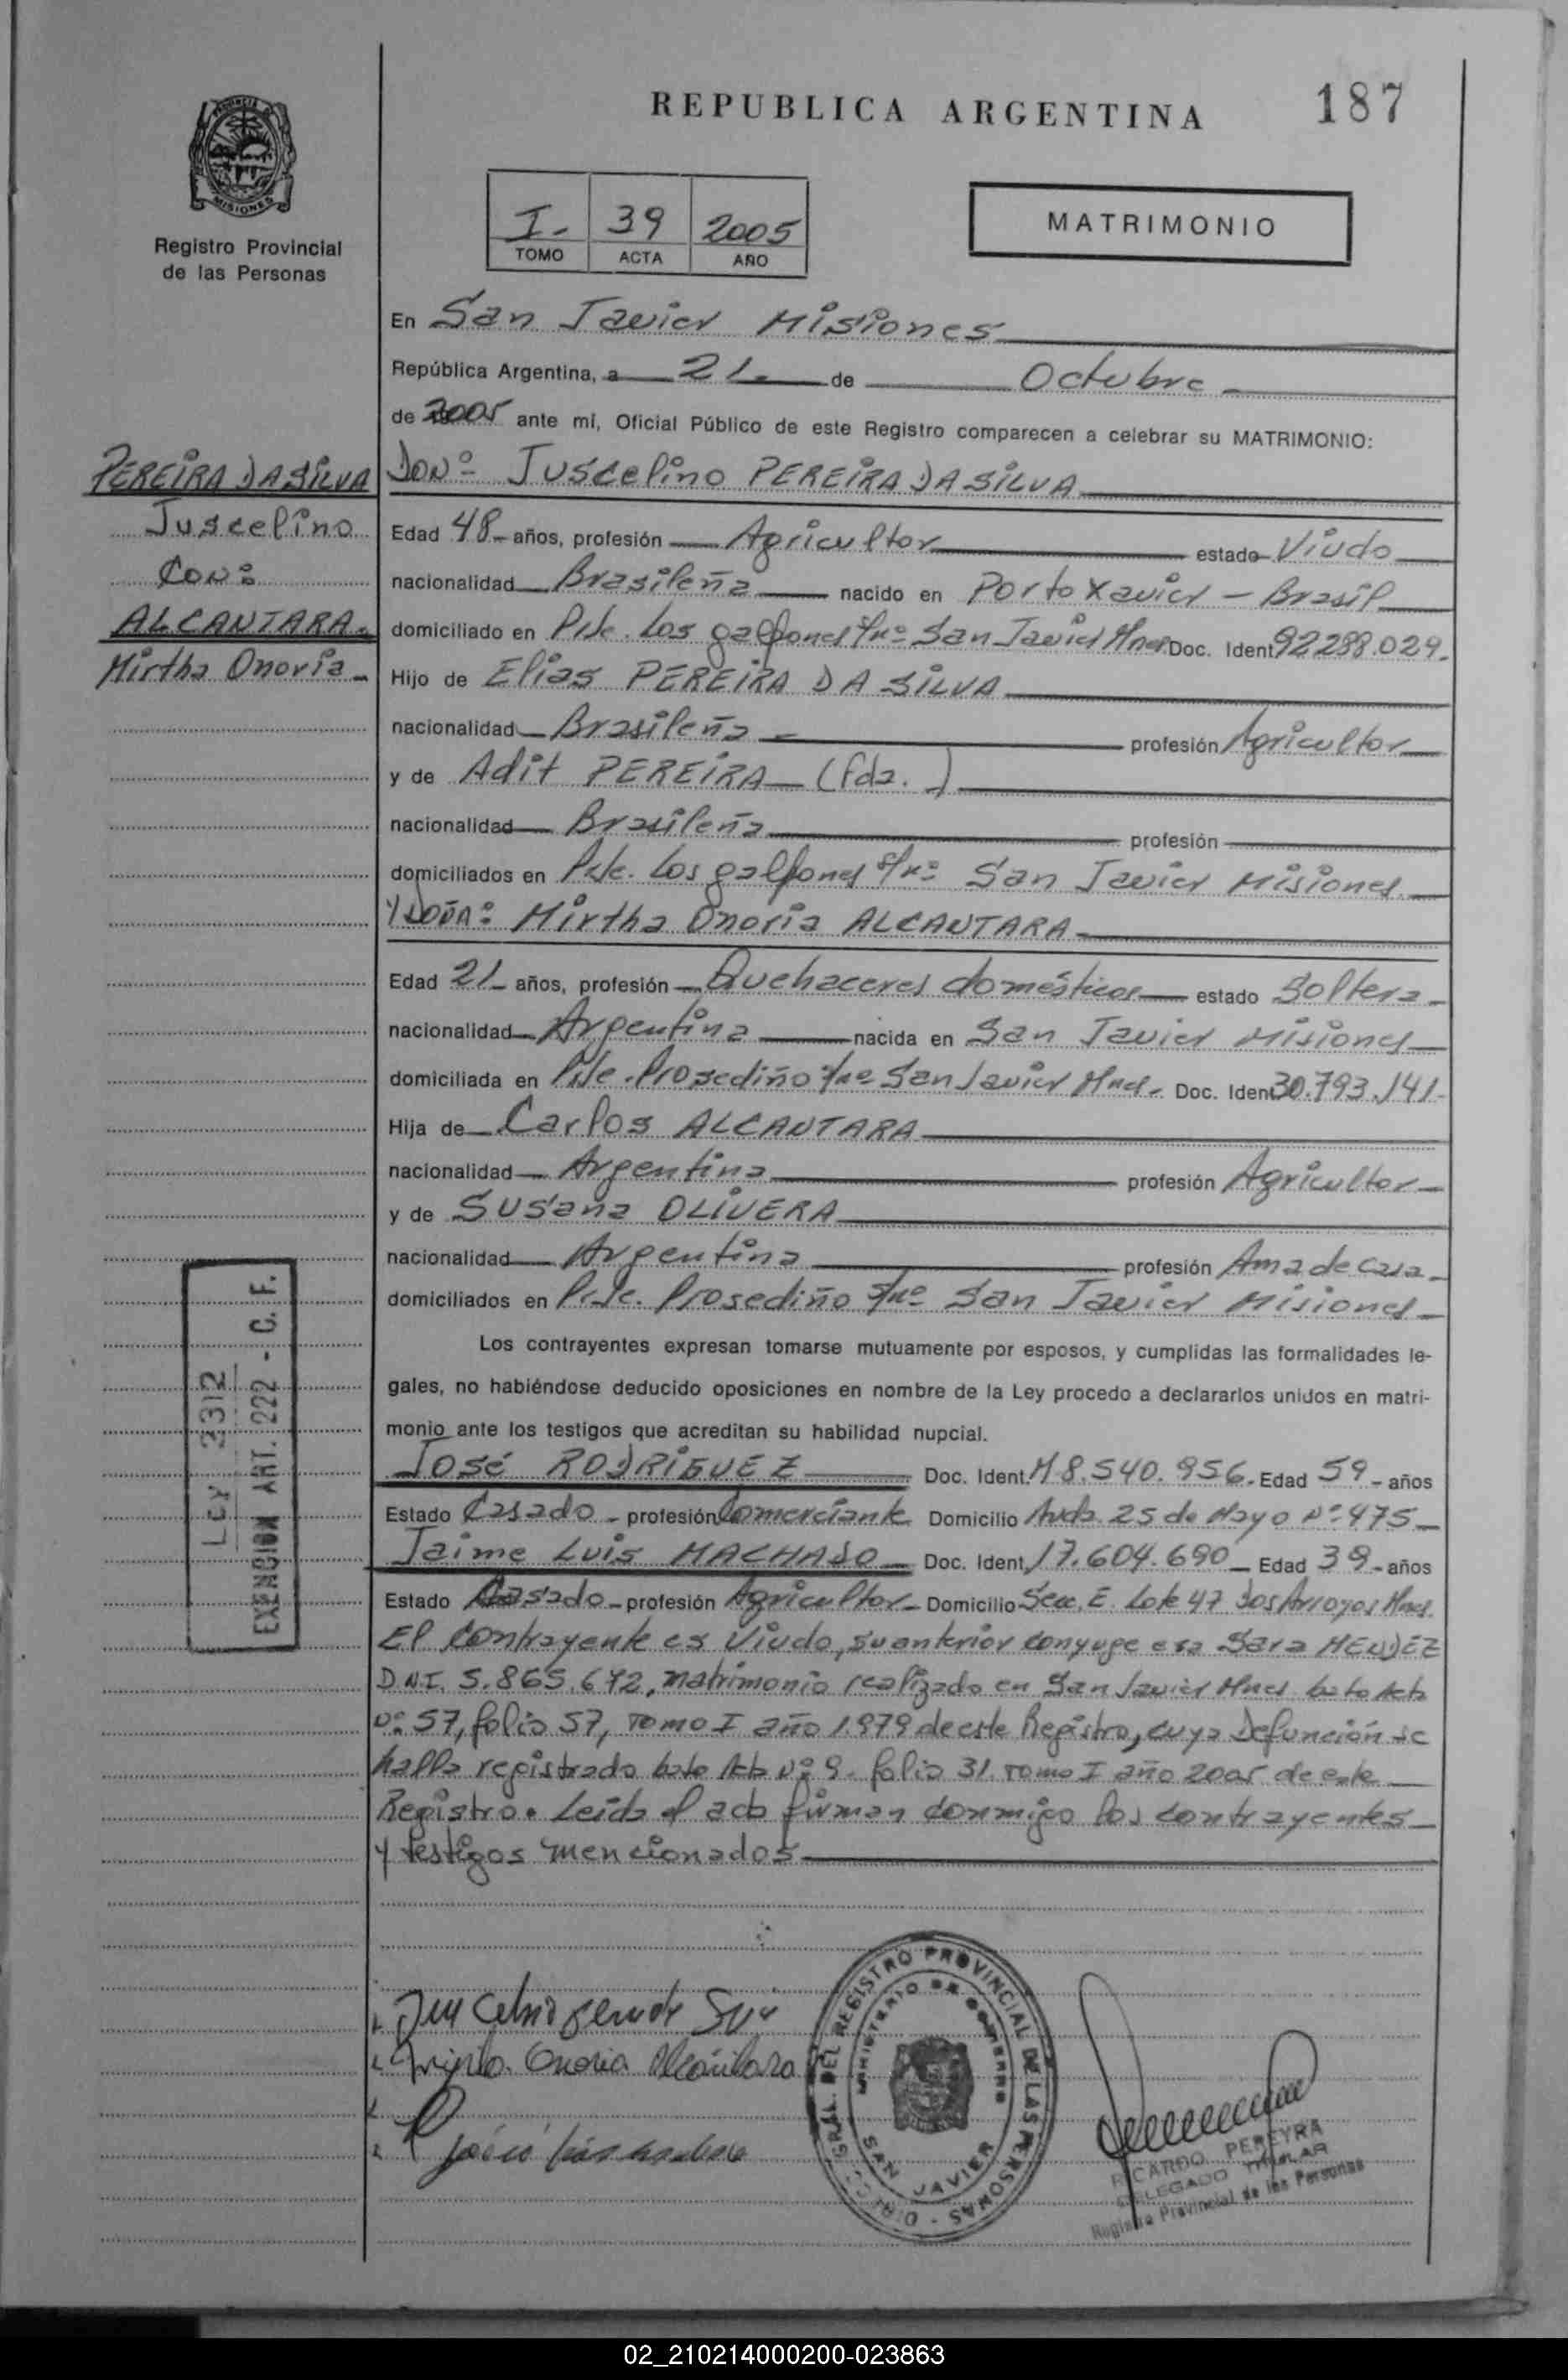 REPUBLICA ARGENTINA
187
MISIONES
Registro Provincial
de las Personas
I. 39 2005
TOMO ACTA AÑO
MATRIMONIO
En San Javier Misiones
República Argentina, a 21 de Octubre
de 2005 ante mí, Oficial Público de este Registro comparecen a celebrar su MATRIMONIO:
PEREIRA DA SILVA
Juscelino
Con:
ALCANTARA
Mirtha Onoria
DON: Juscelino PEREIRA DA SILVA
Edad 48 años, profesión Agricultor estado Viudo
nacionalidad Brasileña nacido en Porto Xavier - Brasil
domiciliado en Pje. Los galpones s/nº San Javier Mnes. Doc. Ident 92.288.029.
Hijo de Elias PEREIRA DA SILVA
nacionalidad Brasileña profesión Agricultor
y de Adit PEREIRA (fda.)
nacionalidad Brasileña profesión
domiciliados en Pje. Los galpones s/nº San Javier Misiones
Y DOÑA: Mirtha Onoria ALCANTARA
Edad 21 años, profesión Quehaceres domésticos estado Soltera
nacionalidad Argentina nacida en San Javier Misiones
domiciliada en Pje. Prosediño s/nº San Javier Mnes. Doc. Ident 30.793.141.
Hija de Carlos ALCANTARA
nacionalidad Argentina profesión Agricultor
y de Susana OLIVERA
nacionalidad Argentina profesión Ama de Casa
domiciliados en Pje. Prosediño s/nº San Javier Misiones
Los contrayentes expresan tomarse mutuamente por esposos, y cumplidas las formalidades le-
gales, no habiéndose deducido oposiciones en nombre de la Ley procedo a declararlos unidos en matri-
monio ante los testigos que acreditan su habilidad nupcial.
José RODRIGUEZ Doc. Ident. M 8.540.956. Edad 59 años
Estado Casado profesión Comerciante Domicilio Avda. 25 de Mayo Nº 475
Jaime Luis MACHADO Doc. Ident. 17.604.690 Edad 39 años
Estado Casado profesión Agricultor Domicilio Secc. E. Lote 47 Dos Arroyos Mnes.
El Contrayente es Viudo, su anterior conyuge era Sara MENDEZ
D.N.I. 5.865.672, matrimonio realizado en San Javier Mnes bajo Acta
Nº 57, folio 57, Tomo I año 1.979 de este Registro, cuya Defunción se
halla registrado bajo Acta Nº 9. folio 31. Tomo I año 2005 de este
Registro. Leída el acta firman conmigo los contrayentes
y testigos mencionados
LEY 2312
EXENCION ART. 222 - C. F.
Onoria Alcantara
REGISTRO PROVINCIAL DE LAS PERSONAS
MINISTERIO DE GOBIERNO
SAN JAVIER
RICARDO PEREYRA
DELEGADO TITULAR
Registro Provincial de las Personas
02_210214000200-023863